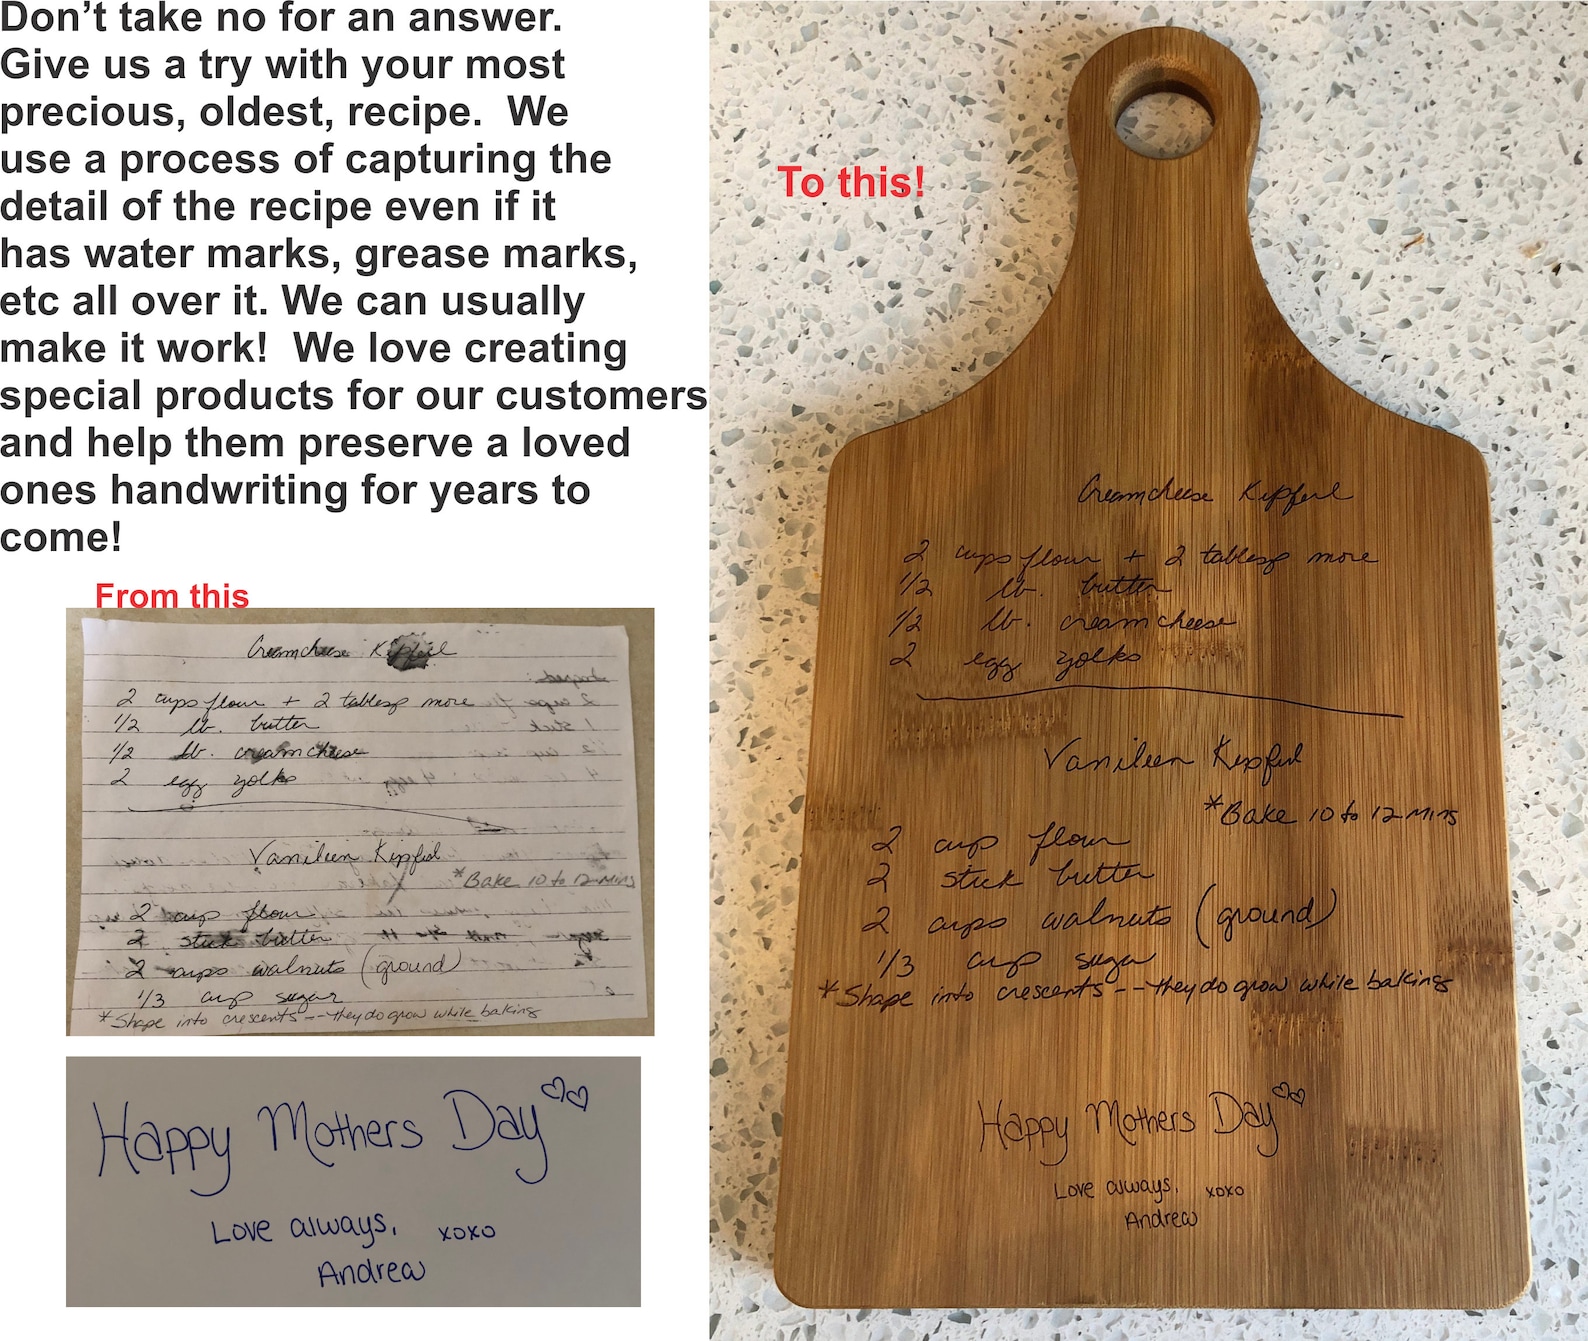 Don’t take no for an answer.
Give us a try with your most
precious, oldest, recipe. We
use a process of capturing the
detail of the recipe even if it
has water marks, grease marks,
etc all over it. We can usually
make it work! We love creating
special products for our customers
and help them preserve a loved
ones handwriting for years to
come!
From this
Creamcheese Kipferl
2 cups flour + 2 tablesp more
1/2 lb. butter
1/2 lb. creamcheese
2 egg yolks
Vanileen Kipferl
*Bake 10 to 12 mins
2 cup flour
2 stick butter
2 cups walnuts (ground)
1/3 cup sugar
*Shape into crescents -- they do grow while baking
Happy Mothers Day
Love always, xoxo
Andrew
To this!
Creamcheese Kipferl
2 cups flour + 2 tablesp more
1/2 lb. butter
1/2 lb. creamcheese
2 egg yolks
Vanileen Kipferl
*Bake 10 to 12 mins
2 cup flour
2 stick butter
2 cups walnuts (ground)
1/3 cup sugar
*Shape into crescents -- they do grow while baking
Happy Mothers Day
Love always, xoxo
Andrew